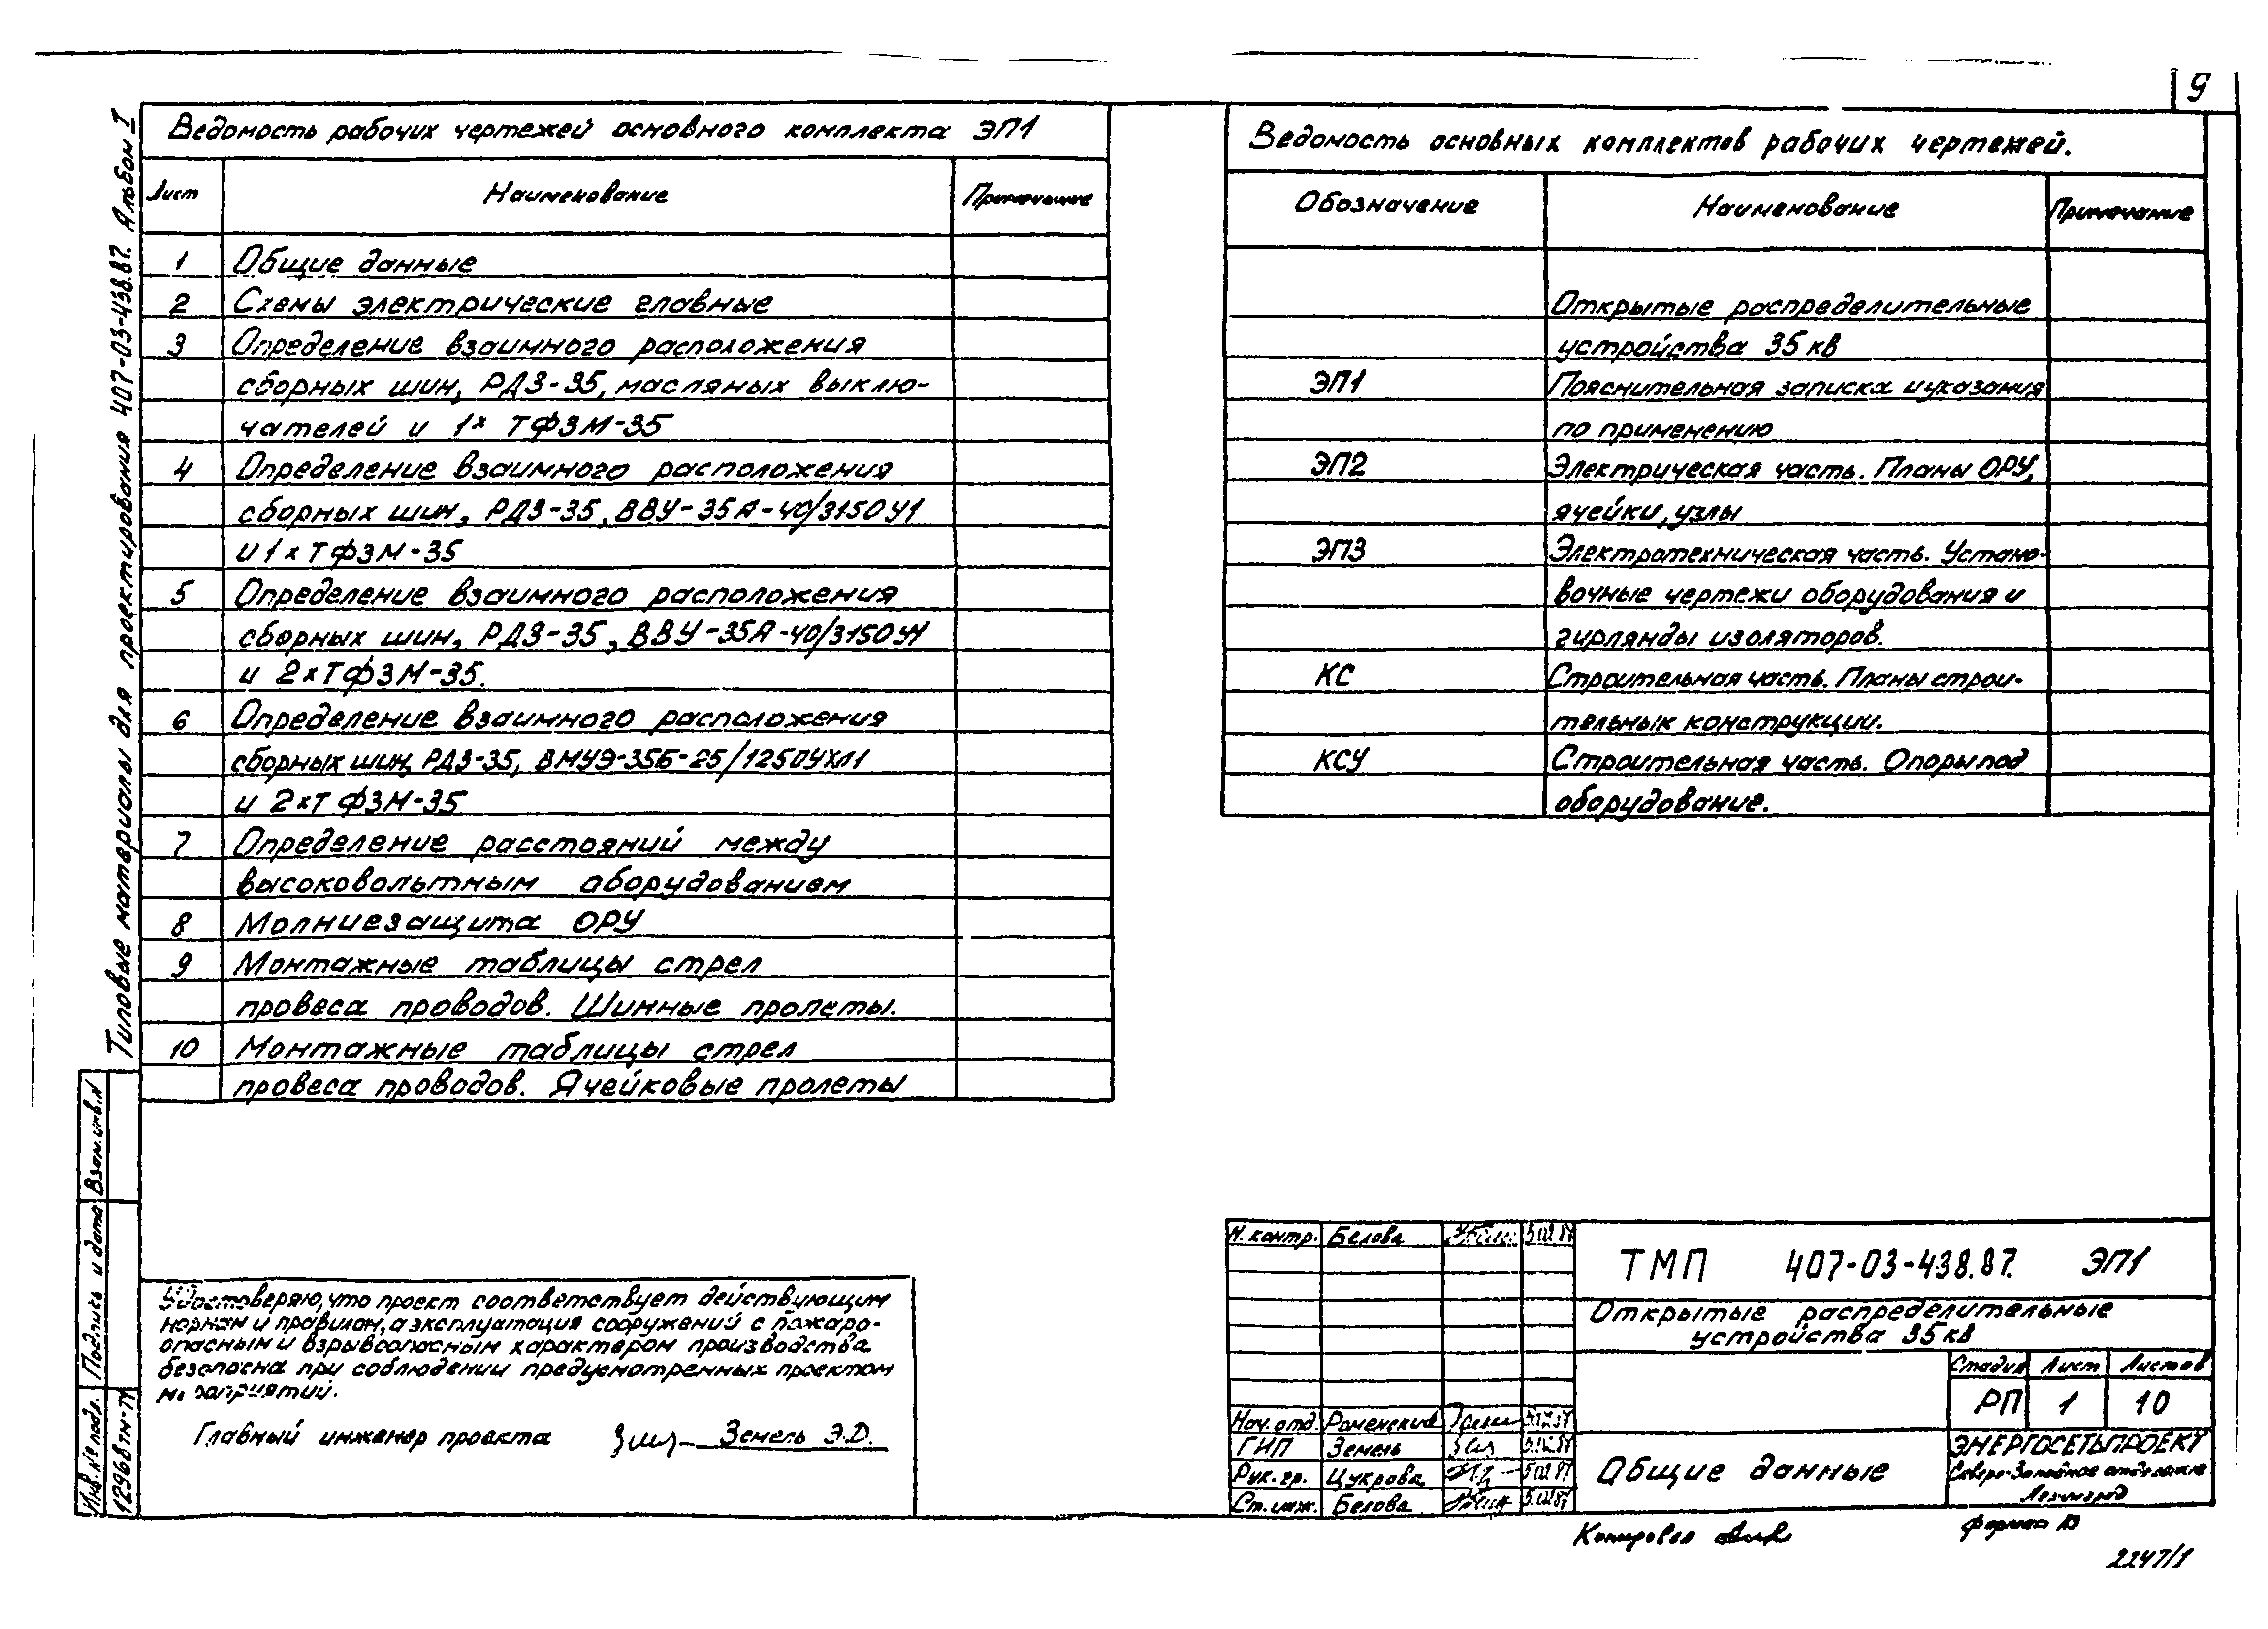 9
Типовые материалы для проектирования 407-03-438.87. Альбом I
Ведомость рабочих чертежей основного комплекта ЭП1
Лист Наименование Примечание
1 Общие данные
2 Схемы электрические главные
3 Определение взаимного расположения
сборных шин, РДЗ-35, масляных выклю-
чателей и 1× ТФЗМ-35
4 Определение взаимного расположения
сборных шин, РДЗ-35, ВВУ-35А-40/3150У1
и 1×ТФЗМ-35
5 Определение взаимного расположения
сборных шин, РДЗ-35, ВВУ-35А-40/3150У1
и 2×ТФЗМ-35.
6 Определение взаимного расположения
сборных шин, РДЗ-35, ВМУЭ-35Б-25/1250УХЛ1
и 2×ТФЗМ-35
7 Определение расстояний между
высоковольтным оборудованием
8 Молниезащита ОРУ
9 Монтажные таблицы стрел
провеса проводов. Шинные пролеты.
10 Монтажные таблицы стрел
провеса проводов. Ячейковые пролеты
Ведомость основных комплектов рабочих чертежей.
Обозначение Наименование Примечание
Открытые распределительные
устройства 35 кв
ЭП1 Пояснительная записка и указания
по применению
ЭП2 Электрическая часть. Планы ОРУ,
ячейки, узлы
ЭП3 Электротехническая часть. Устано-
вочные чертежи оборудования и
гирлянды изоляторов.
КС Строительная часть. Планы строи-
тельных конструкции.
КСУ Строительная часть. Опоры под
оборудование.
Взам. инв. N
Подпись и дата
Инв. № подл.
12968тм-т1
Удостоверяю, что проект соответствует действующим
нормам и правилам, а эксплуатация сооружений с пожаро-
опасным и взрывоопасным характером производства
безопасна при соблюдении предусмотренных проектом
мероприятий.
Главный инженер проекта Земель Э.Д.
Н. контр. Белова 5.02.87
Нач. отд. Роменский 5.02.87
ГИП Земель 5.02.87
Рук. гр. Цукрова 5.02.87
Ст. инж. Белова 5.02.87
ТМП 407-03-438.87. ЭП1
Открытые распределительные
устройства 35 кв
Стадия Лист Листов
РП 1 10
Общие данные
ЭНЕРГОСЕТЬПРОЕКТ
Северо-Западное отделение
Ленинград
Копировал
Формат А3
2247/1